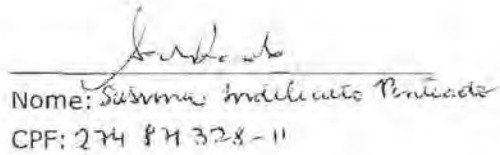 Nome: Susima Indelicato Penteado
CPF: 274 871 328-11